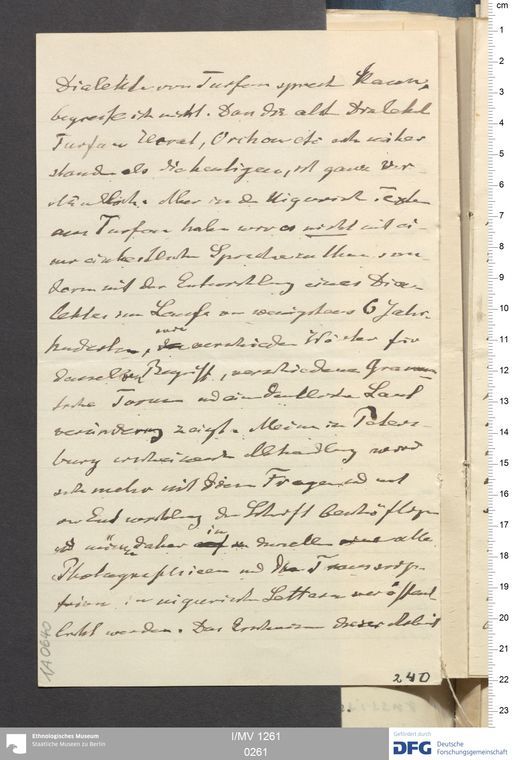 Dialekte von Turfan sprech kann,
begreife ich nicht. Dan die alt Dialekte
Turfan
standen als die heutigen, ist ganz ver-
ständlich. Aber in den Uigurisch Texten
aus Turfan haben wir es nicht mit ei-
ner einheitlichen Sprache zu thun son-
dern mit der Entwicklung eines Dia-
lektes im Laufe von wenigstens 6 Jahr-
hunderten, wie verschieden Wörter für
denselben Begriff, verschiedene Gramm
tische Formen und ein deutliche Laut
veränderung zeigt. Meine in Peters-
burg erscheinende Abhandlung wird
sich mehr mit diesen Fragen und mit
der Entwicklung der Schrift beschäftigen
und müssen daher in derselben alle
Photographieen und die Transcrip-
tion in uigurisch Lettern veröffent
licht werden. Das Erscheinen dieser Arbeit
240
1A 0640
cm
1
2
3
4
5
6
7
8
9
10
11
12
13
14
15
16
17
18
19
20
21
22
23
Ethnologisches Museum
Staatliche Museen zu Berlin
I/MV 1261
0261
Gefördert durch
DFG Deutsche
Forschungsgemeinschaft